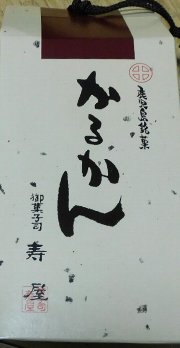 鹿児島銘菓
かるかん
御菓子司
寿屋